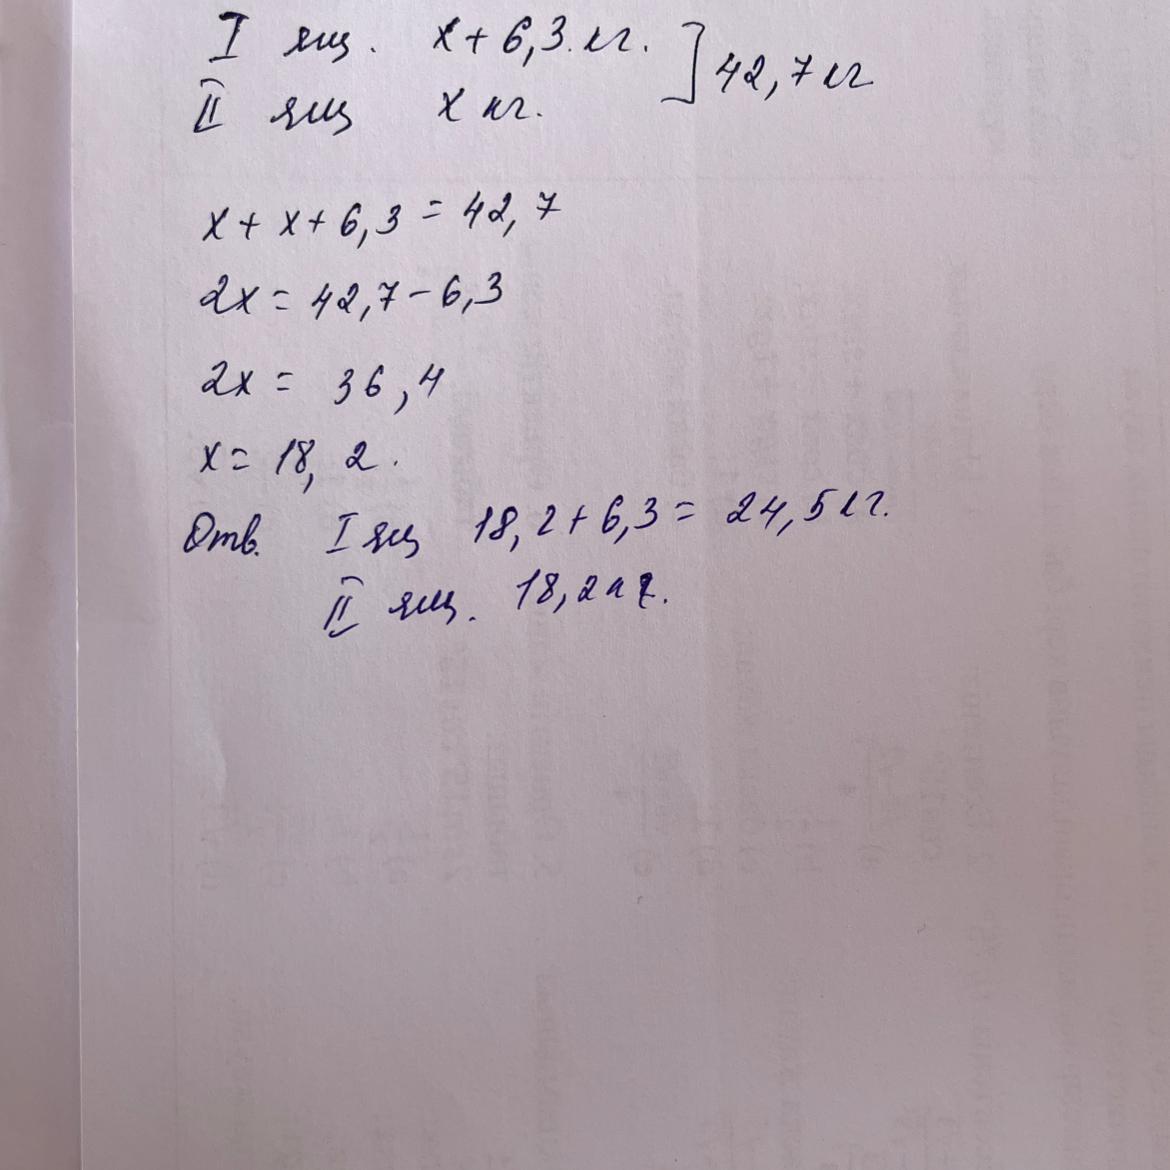 I ящ. x + 6,3 кг. ] 42,7 кг
II ящ x кг.
x + x + 6,3 = 42,7
2x = 42,7 - 6,3
2x = 36,4
x = 18,2.
Отв. I ящ 18,2 + 6,3 = 24,5 кг.
II ящ. 18,2 кг.